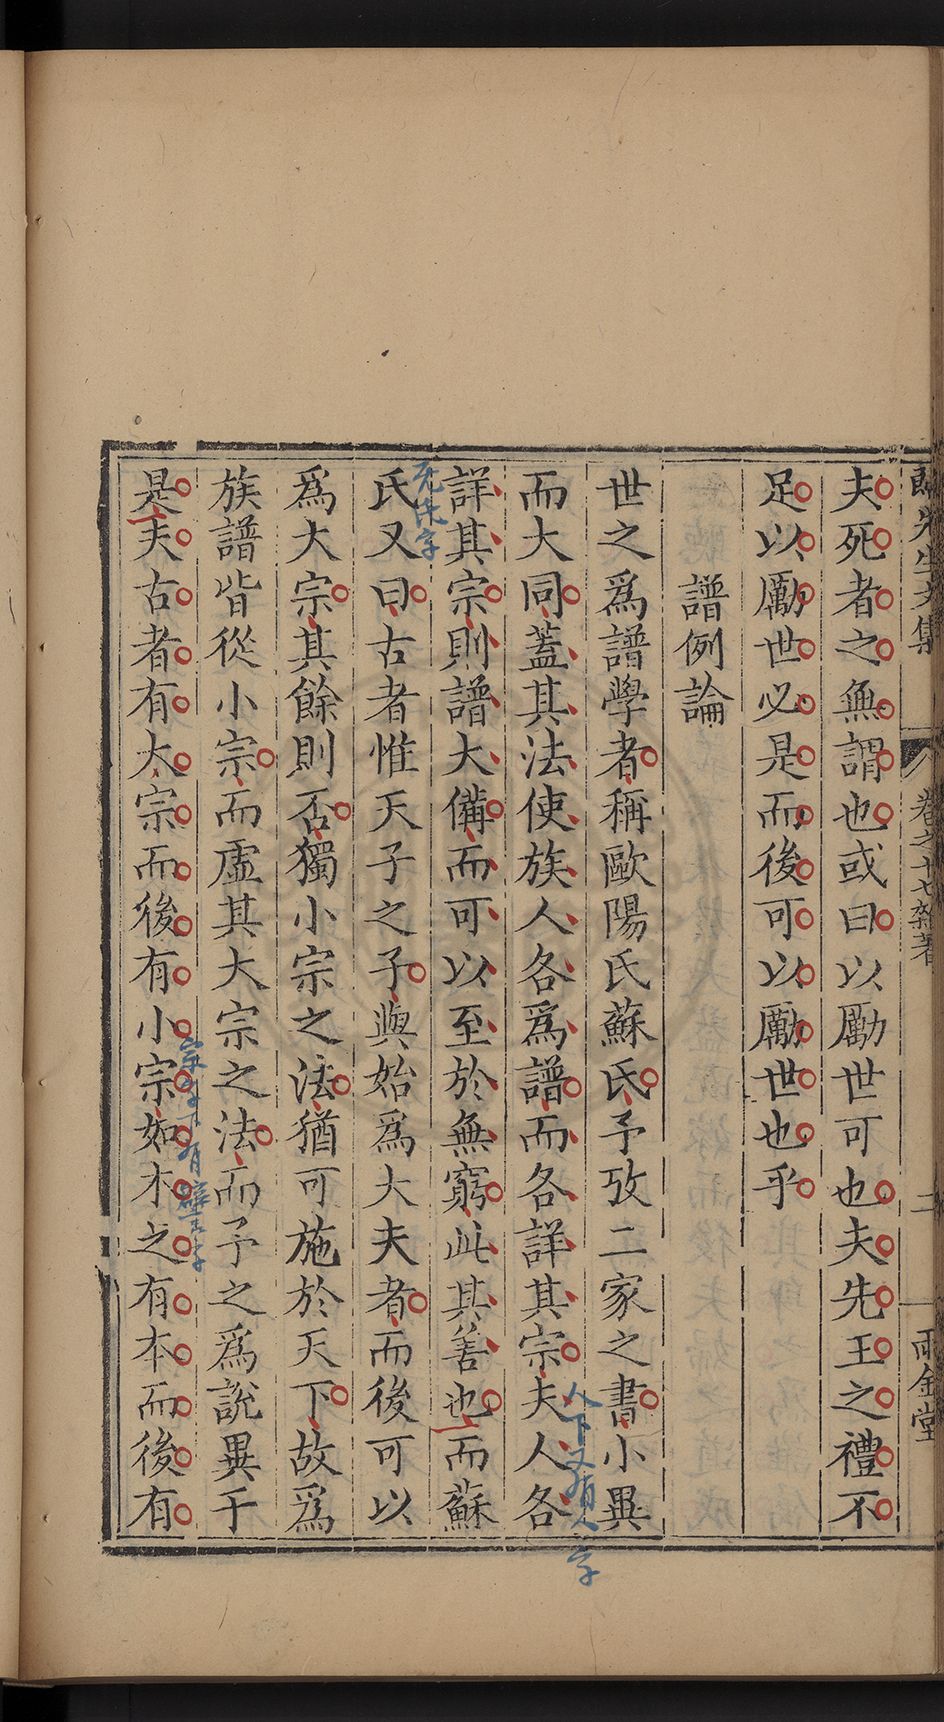 先生文集 卷之十七雜著 二 雨金堂
夫死者之無謂也或曰以勵世可也夫先王之禮不
足以勵世必是而後可以勵世也乎
譜例論
世之爲譜學者稱歐陽氏蘇氏予攷二家之書小異
而大同蓋其法使族人各爲譜而各詳其宗夫人各
人下又有人字
詳其宗則譜大備而可以至於無窮此其善也而蘇
氏又曰古者惟天子之子與始爲大夫者而後可以
爲大宗其餘則否獨小宗之法猶可施於天下故爲
族譜皆從小宗而虛其大宗之法而予之爲說異于
是夫古者有大宗而後有小宗如木之有本而後有